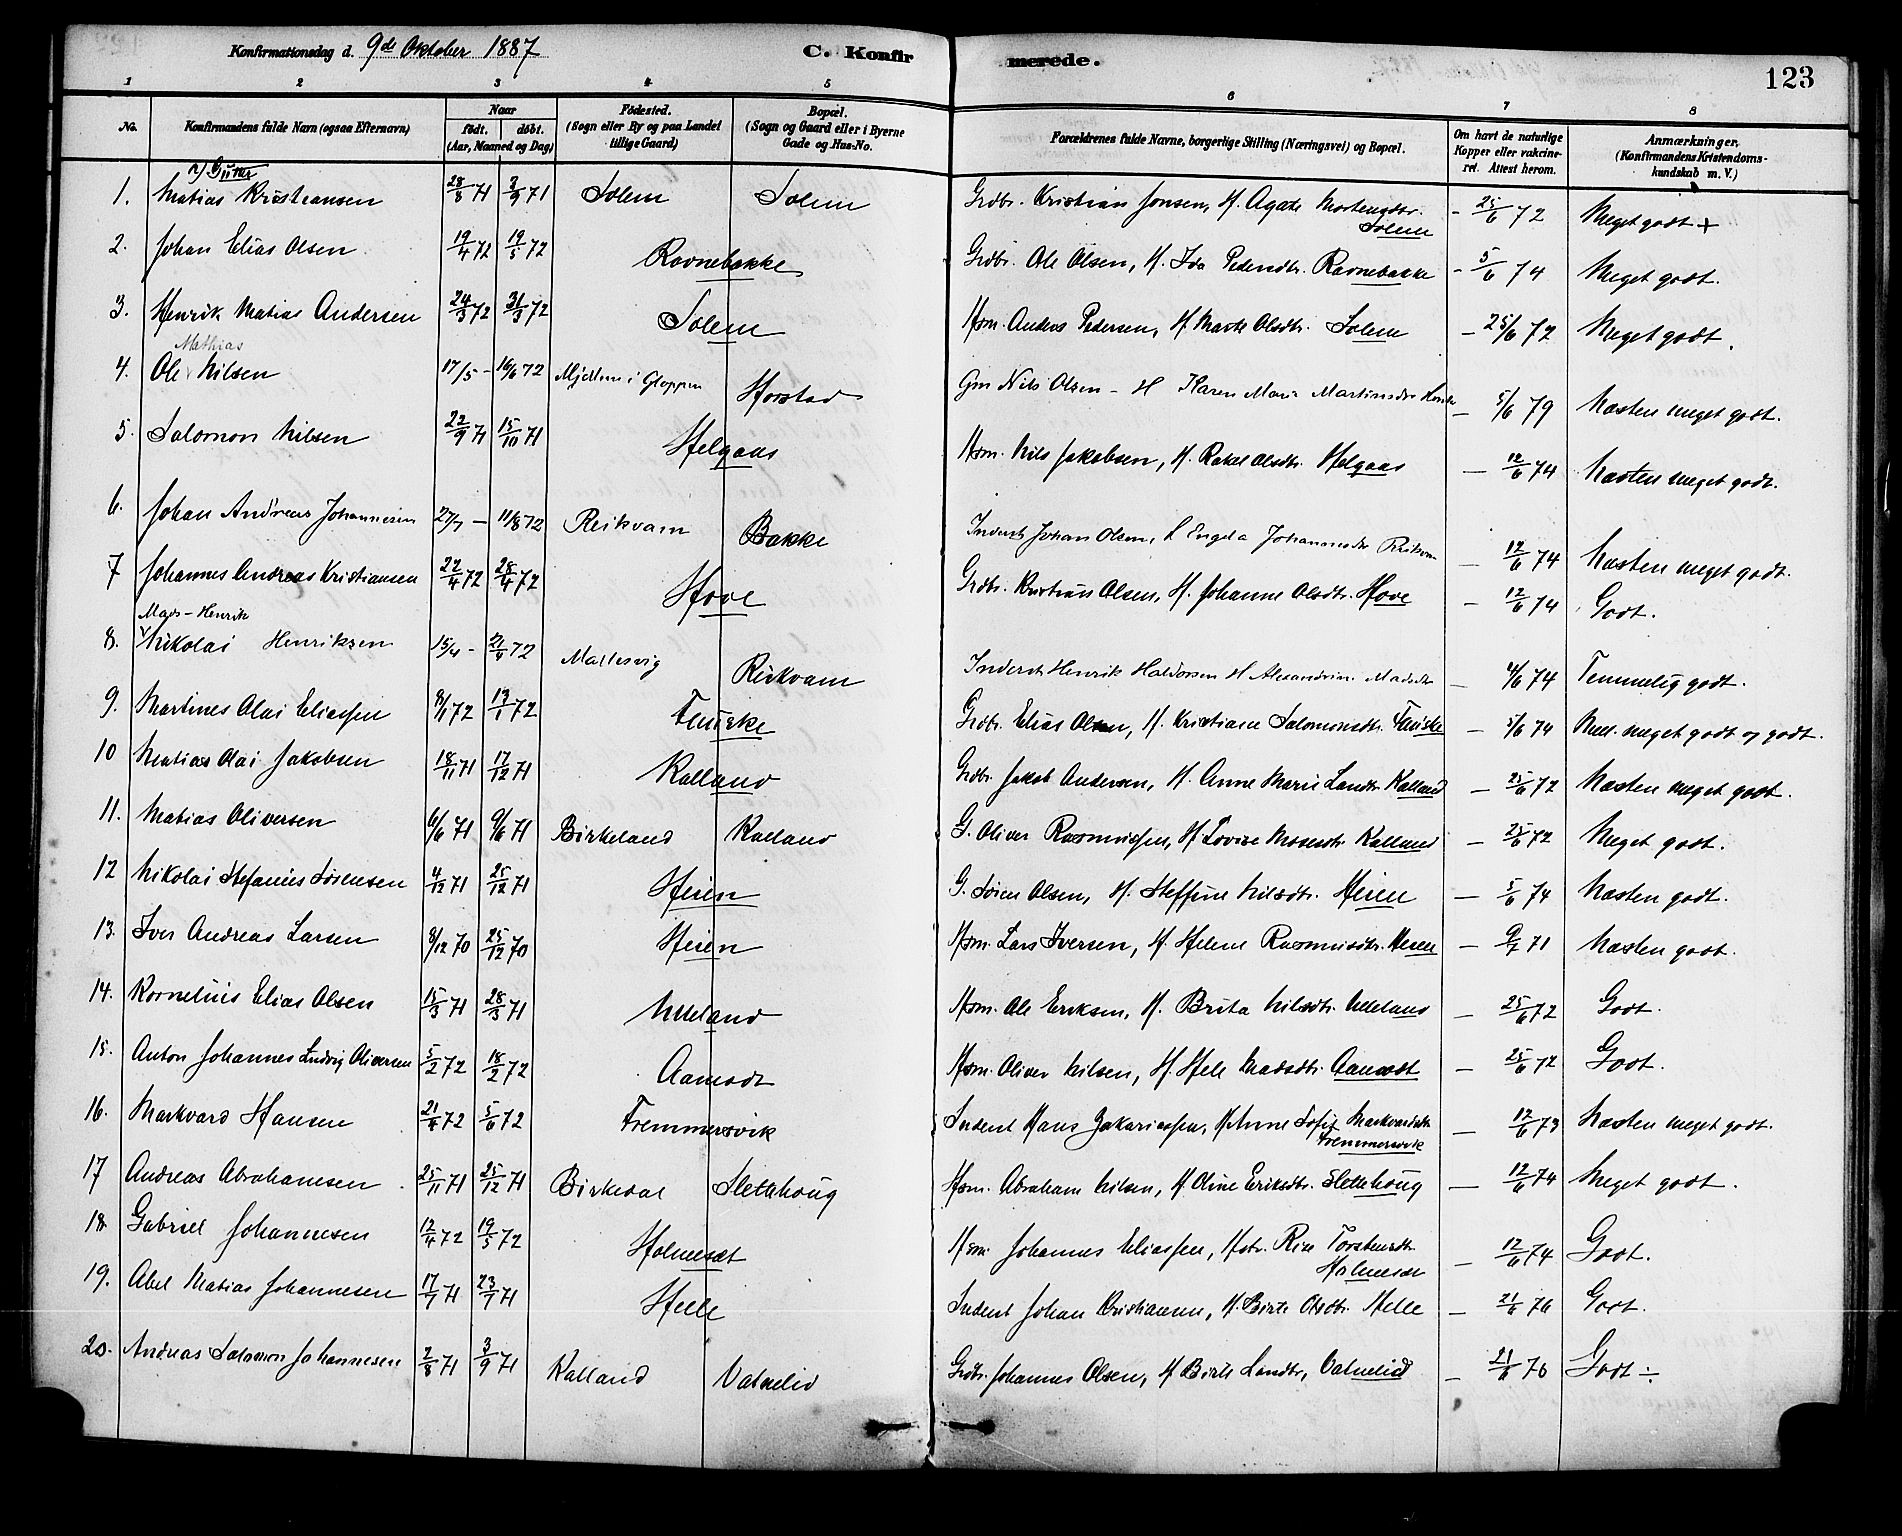 Konfirmationsdag d. 9de Oktober 1887
C. Konfir merede.
123
1 2 3 4 5 6 7 8
No. Konfirmandens fulde Navn (ogsaa Efternavn) Naar født. døbt. (Aar, Maaned og Dag) Fødested. (Sogn eller By og paa Landet tillige Gaard) Bopæl. (Sogn og Gaard eller i Byerne Gade og Hus-No. Forældrenes fulde Navne, borgerlige Stilling (Næringsvei) og Bopæl. Om havt de naturlige Kopper eller vakcineret. Attest herom. Anmærkninger. (Konfirmandens Kristendomskundskab m. V.)
a) Gutter
1. Matias Kristiansen 28/8 71 3/9 71 Solem Solem Grdbr. Kristian Jonsen, H. Agate Mortensdtr. Solem - 25/6 72 Meget godt +
2. Johan Elias Olsen 19/4 72 19/5 72 Ravnebakke Grdbr. Ole Olsen, H. Ida Pedersdtr. Ravnebakke - 5/6 74 Meget godt.
3. Henrik Matias Andersen 24/3 72 31/3 72 Solem Hsm. Anders Pedersen, H. Marte Olsdtr. Solem - 25/6 72 Meget godt.
4. Ole Mathias Nilsen 17/5 - 16/6 72 Mjellem i Gloppen Horstad Gm Nils Olsen - H Karen Marie Martinsdtr - 5/6 79 Næsten meget godt.
5. Salomon Nilsen 22/9 71 15/10 71 Helgaas Hsm. Nils Jakobsen, H. Rakel Olsdtr. Helgaas - 12/6 74 Næsten meget godt.
6. Johan Andreas Johannesen 27/7 - 11/8 72 Reikvam Bakke Inderst Johan Olsen, H Engela Johannesdtr Reikvam - 12/6 74 Næsten meget godt.
7 Johannes Andreas Kristiansen 22/4 72 28/4 72 Hove Grdbr. Kristian Olsen, H. Johanne Olsdtr. Hove - 12/6 74 Godt.
8. Mads-Henrik Nikolai Henriksen 15/4 - 21/4 72 Mallesvig Reikvam Inderst Henrik Haldorsen H Alexandrine Madsdtr - 4/6 74 Temmelig godt.
9. Martines Olai Eliassen 8/1 72 13/1 72 Fauske Grdbr. Elias Olsen, H. Kristiane Salomonsdtr. Fauske - 5/6 74 Mell. meget godt og godt.
10 Matias Olai Jakobsen 18/11 71 17/12 71 Kalland Grdbr. Jakob Andersen, H. Anne Marie Larsdtr. Kalland - 25/6 72 Næsten meget godt.
11. Matias Oliversen 6/6 71 9/6 71 Birkeland Kalland G. Oliver Rasmussen, H. Lovise Mosesdtr. Kalland - 25/6 72 Meget godt.
12 Nikolai Stefanus Sørensen 4/12 71 25/12 71 Heien G. Søren Olsen, H. Steffine Nilsdtr. Heien - 5/6 74 Næsten godt.
13. Iver Andreas Larsen 8/12 70 25/12 70 Heien Hsm. Lars Iversen, H. Helene Rasmusdtr. Heien - 71 Næsten godt.
14. Kornelius Elias Olsen 15/3 71 28/3 71 Hsm. Ole Eriksen, H. Brita Nilsdtr. - 25/6 72 Godt.
15. Anton Johannes Ludvig Oliversen 5/2 72 18/2 72 Aamodt Hsm. Oliver Nilsen, H. Helle Madsdtr. Aamodt - 25/6 72 Godt.
16. Markvard Hansen 21/4 72 5/6 72 Fremmersvik Inderst Hans Zakariassen, H. Anne Sofie Markvardsdtr Fremmersvik - 12/6 73 Næsten meget godt.
17 Andreas Abrahamsen 25/11 71 25/12 71 Birkedal Slettehoug Hsm. Abraham Nilsen, H. Oline Eriksdtr. Slettehoug - 12/6 74 Meget godt.
18. Gabriel Johannesen 12/4 72 19/5 72 Holmesæt Hsm. Johannes Eliassen, Hstr. Rise Torstensdtr. Holmesæt - 12/6 74 Godt.
19. Abel Matias Johannesen 17/7 71 23/7 71 Helle Inderst Johan Kristiansen, H. Birte Olsdtr. Helle - 21/6 76 Godt.
20. Andreas Salomon Johannesen 2/8 71 3/9 71 Kalland Vatnelid Grdbr. Johannes Olsen, H Birte Larsdtr., Vatnelid - 21/6 76 Godt ÷